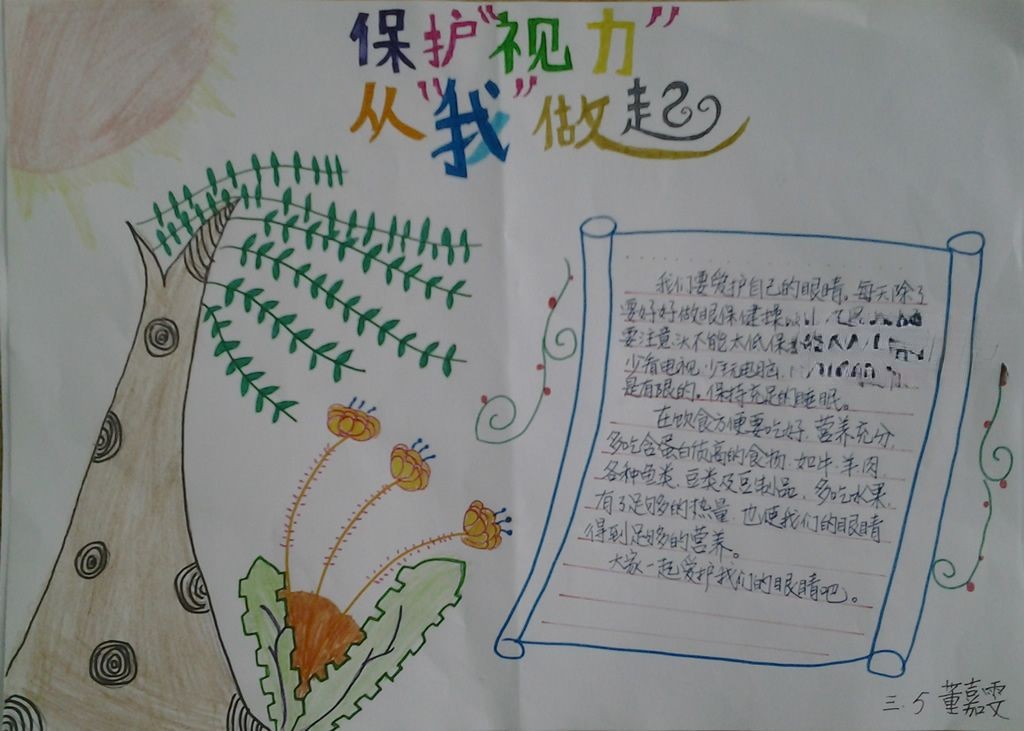 保护“视力”
从“我”做起
我们要爱护自己的眼睛。每天除了
要好好做眼保健操
要注意头不能太低保
少看电视,少玩电脑,
是有限的。保持充足的睡眠。
在饮食方便要吃好,营养充分,
多吃含蛋白质高的食物,如牛、羊肉,
各种鱼类、豆类及豆制品,多吃水果,
有了足够多的热量,也使我们的眼睛
得到足够多的营养。
大家一起爱护我们的眼睛吧。
三.5 董嘉雯